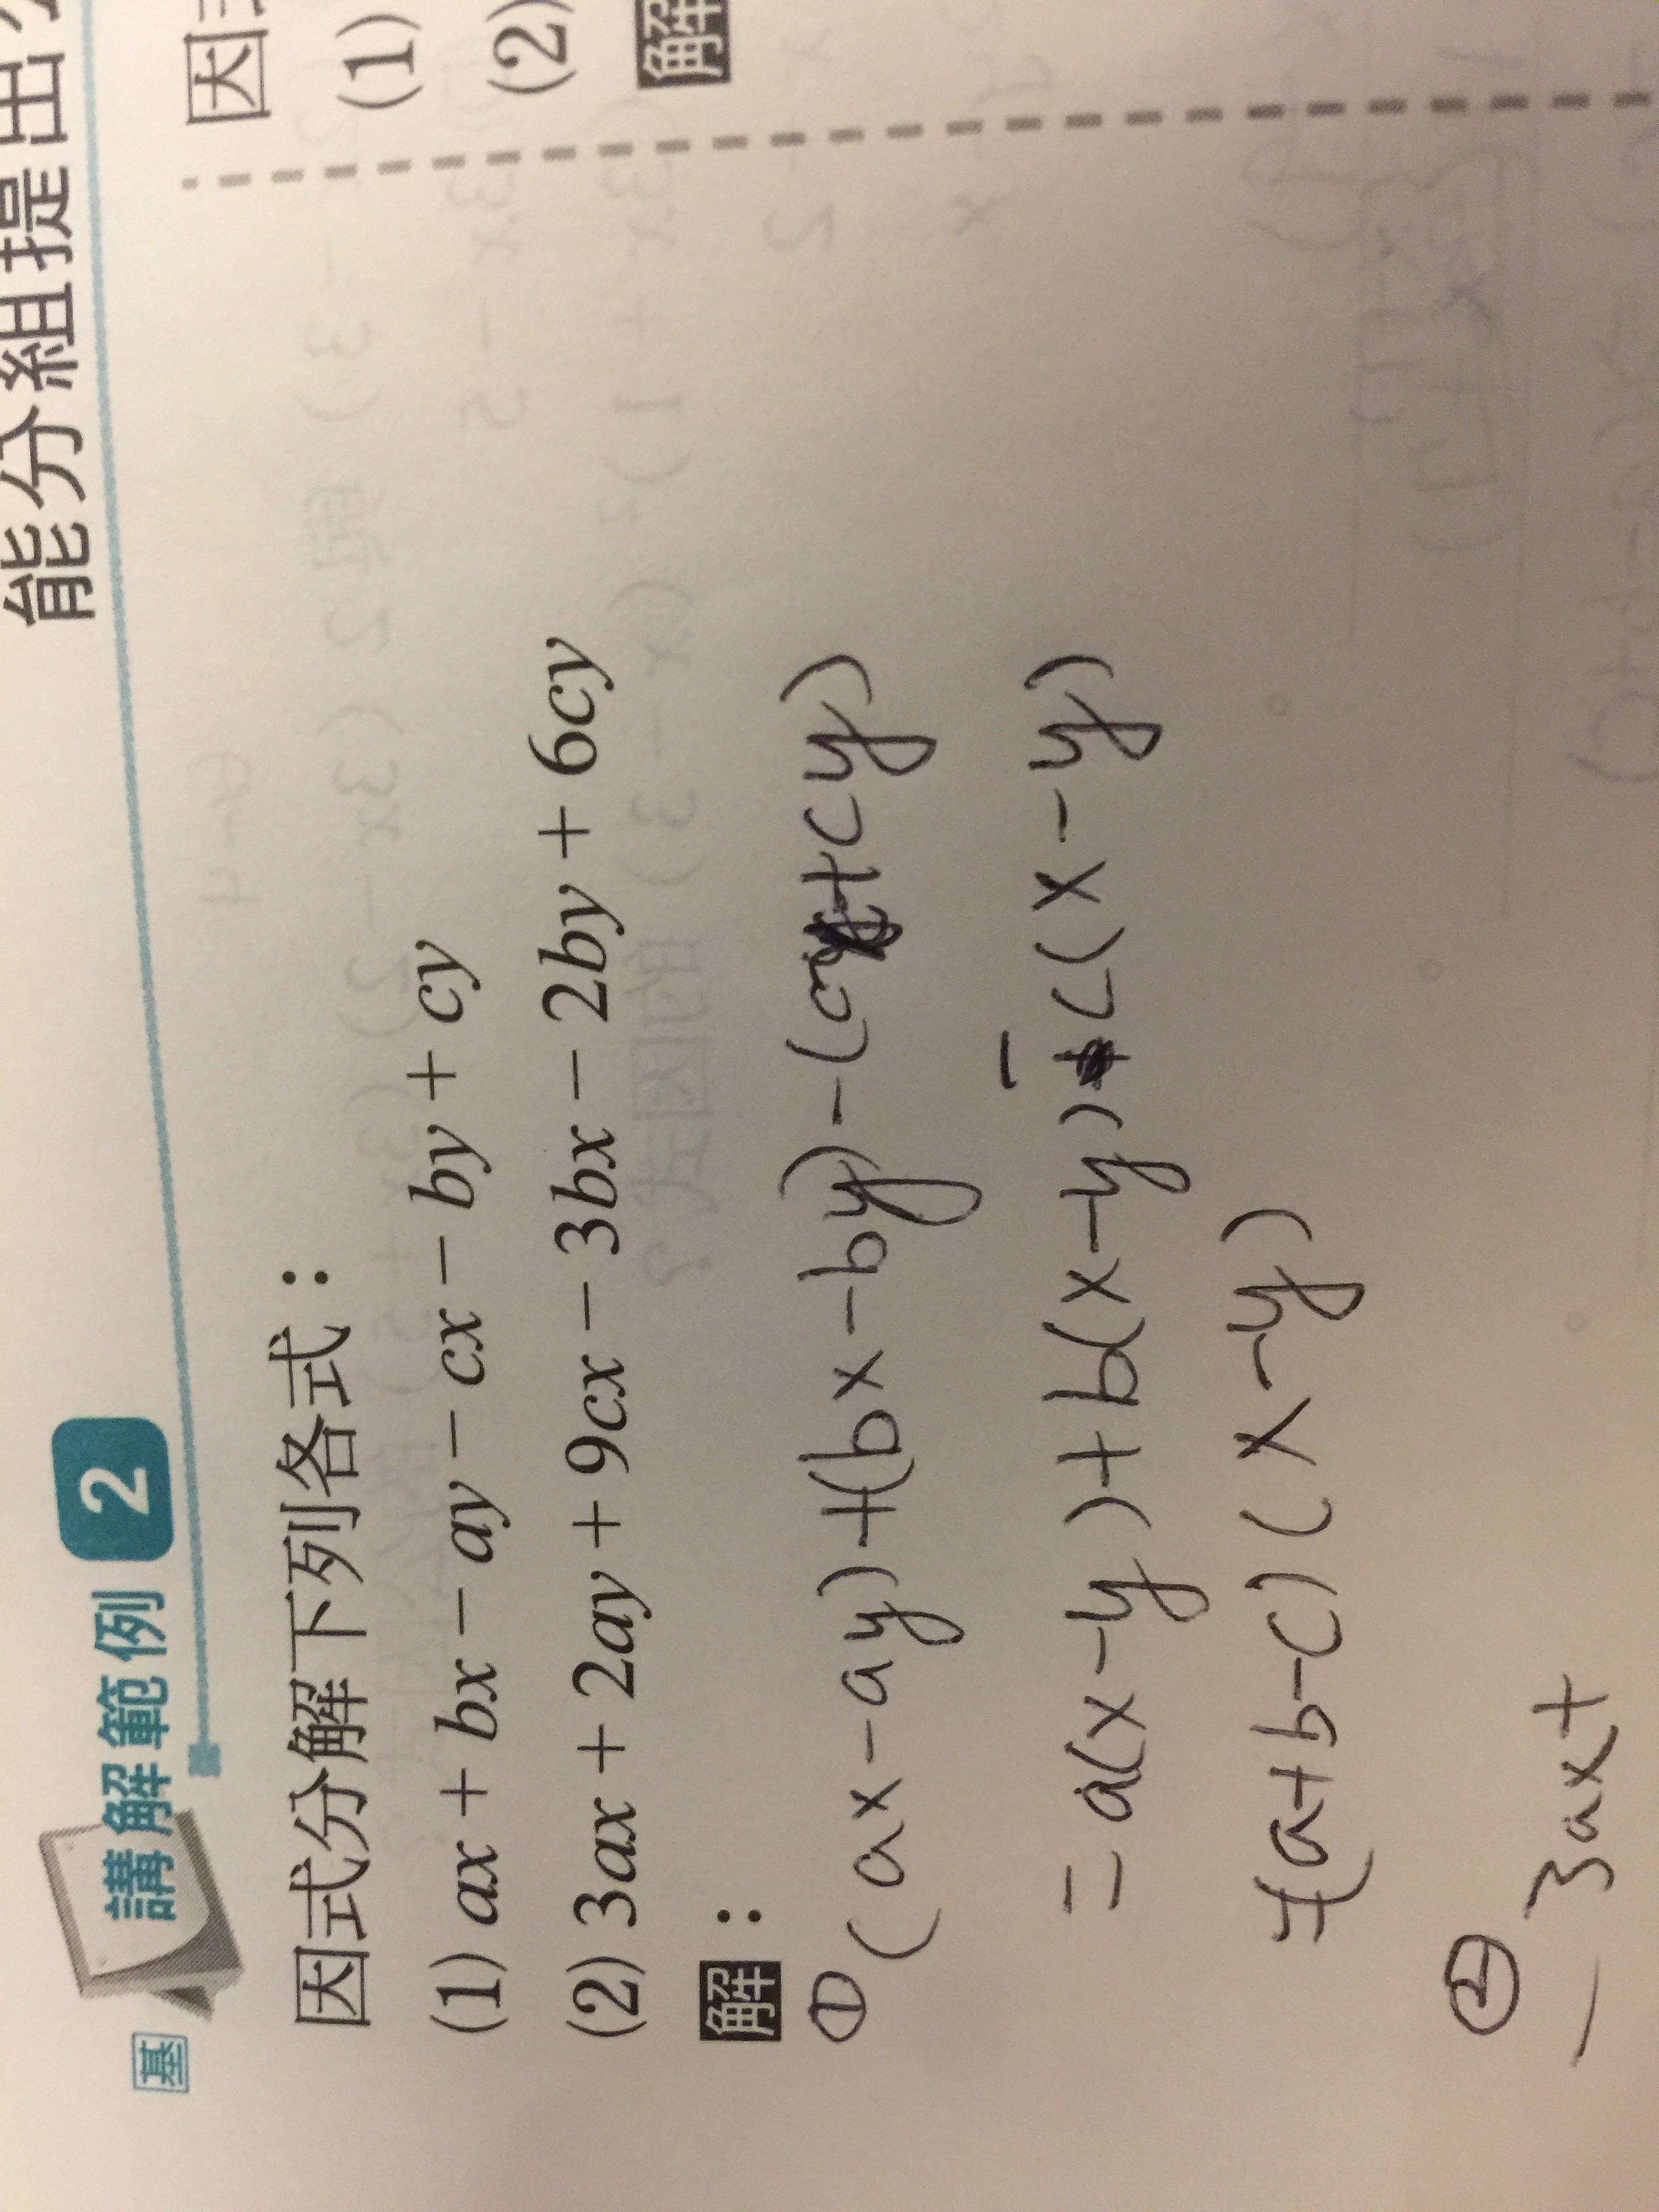 能分組提出
基 講解範例 2
因式分解下列各式：
(1) ax + bx − ay − cx − by + cy
(2) 3ax + 2ay + 9cx − 3bx − 2by + 6cy
解：
① (ax−ay)+(bx−by)−(cx+cy)
= a(x−y)+b(x−y)−c(x−y)
=(a+b−c)(x−y)
②
3ax+
因
(1)
(2)
解